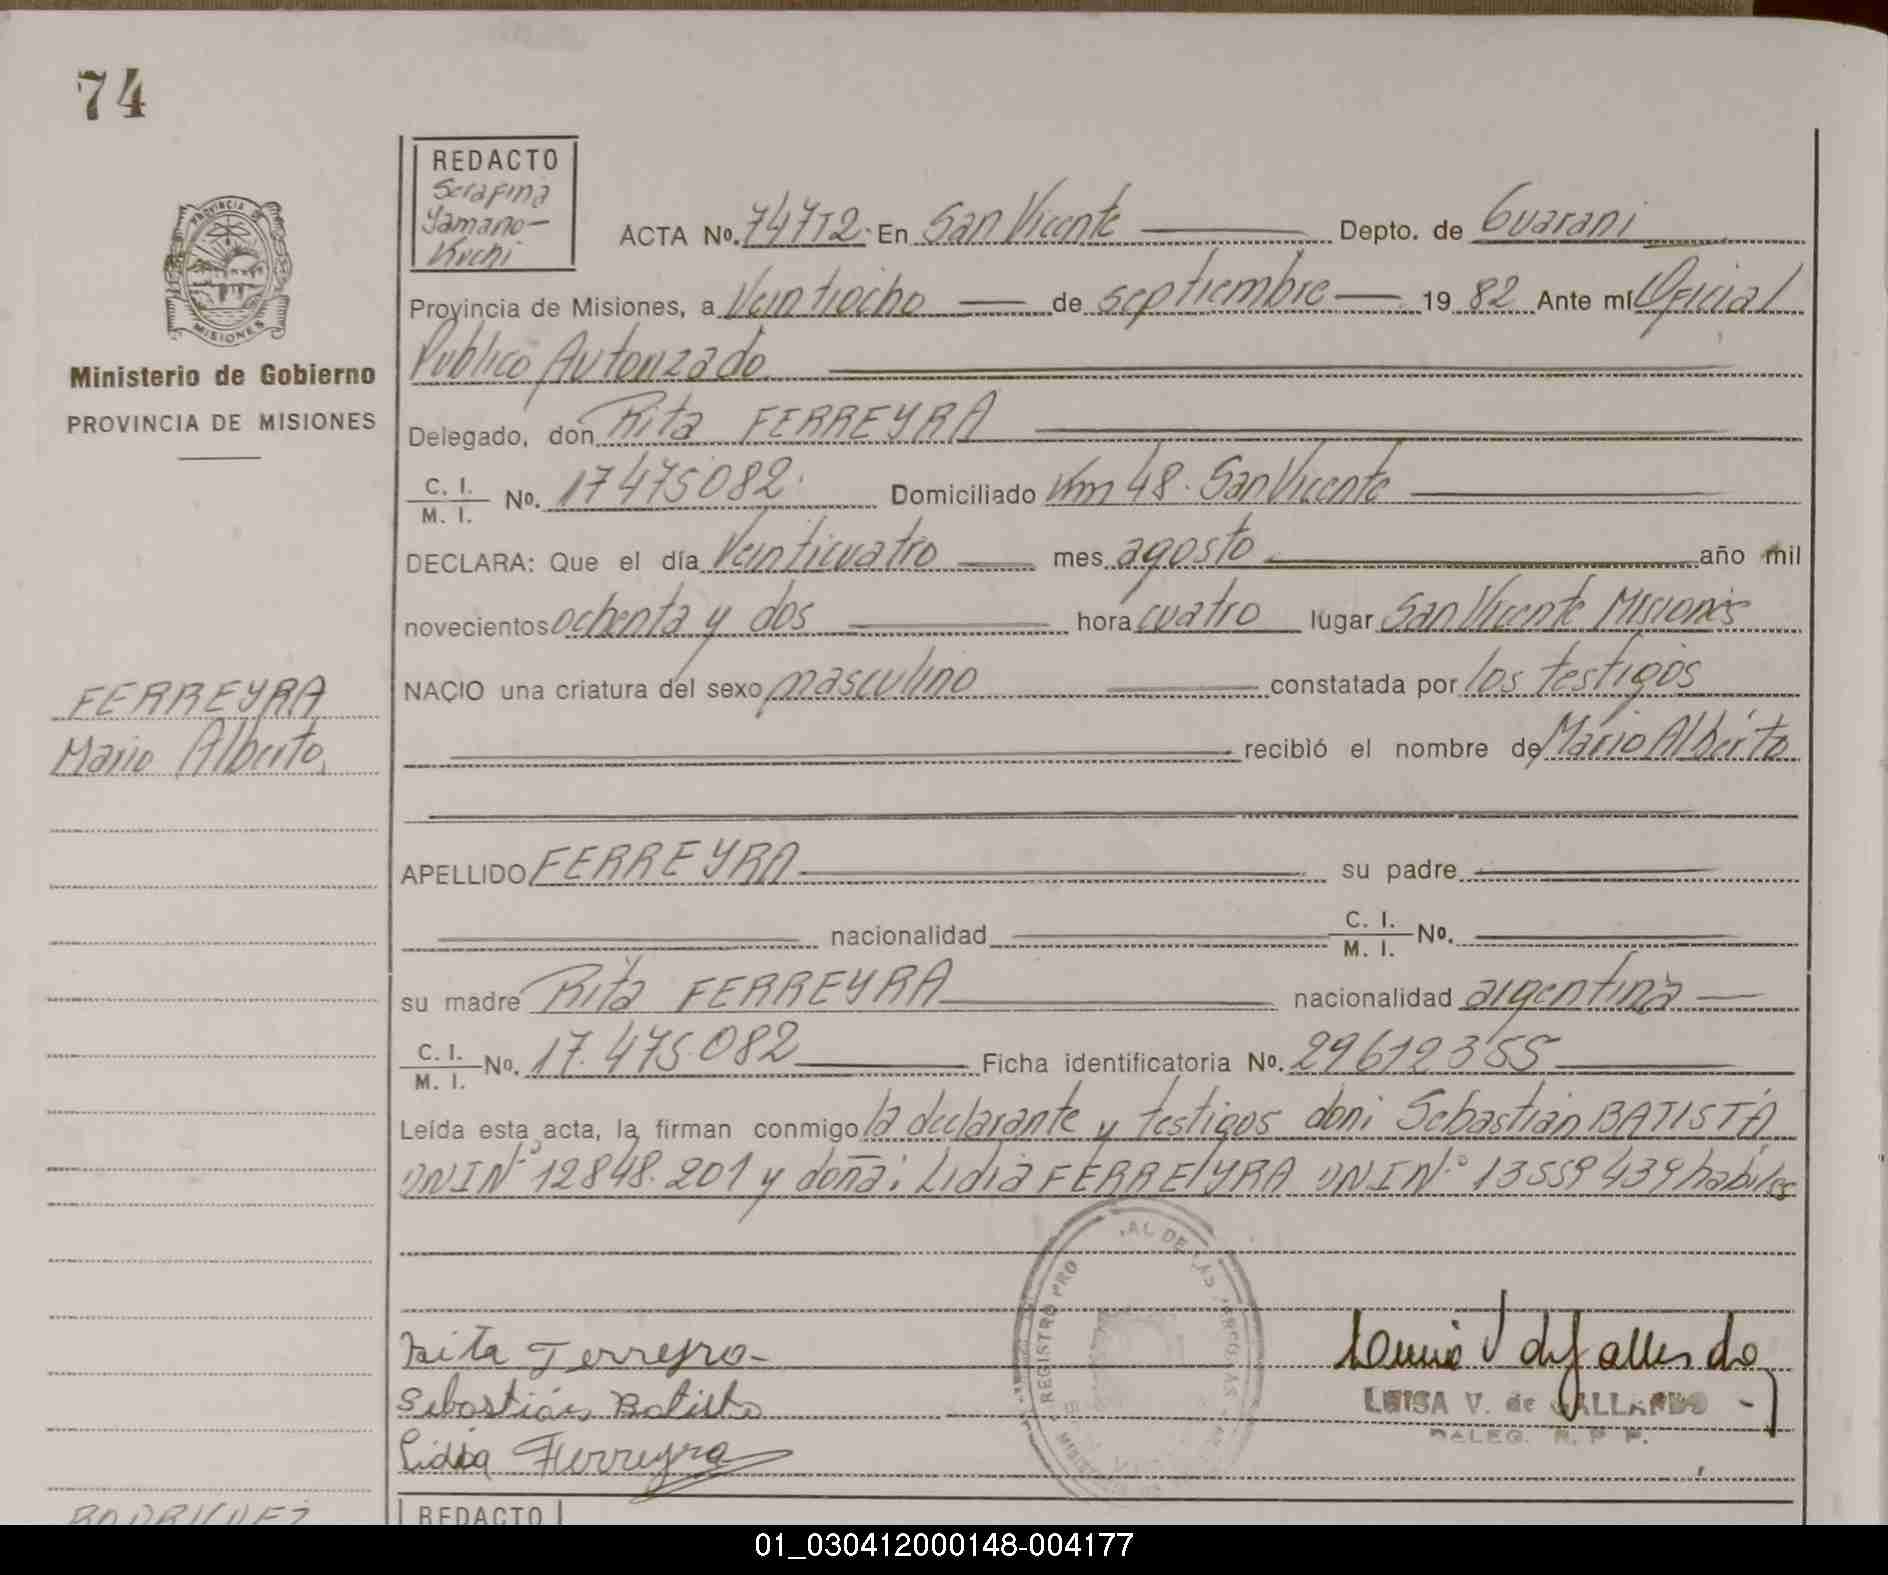 74
PROVINCIA DE
MISIONES
Ministerio de Gobierno
PROVINCIA DE MISIONES
FERREYRA
Mario Alberto
REDACTO
Serafina
Yamano-
Kuchi
ACTA No. 74712. En San Vicente Depto. de Guarani
Provincia de Misiones, a Veintiocho de septiembre 19 82 Ante mí Oficial
Publico Autorizado
Delegado, don Rita FERREYRA
C. I. / M. I. No. 17475082. Domiciliado Km 48. San Vicente
DECLARA: Que el día Veinticuatro mes agosto año mil
novecientos ochenta y dos hora cuatro lugar San Vicente Misiones
NACIO una criatura del sexo masculino constatada por los testigos
recibió el nombre de Mario Alberto
APELLIDO FERREYRA su padre
nacionalidad C. I. / M. I. No.
su madre Rita FERREYRA nacionalidad argentina
C. I. / M. I. No. 17.475.082 Ficha identificatoria No. 29612355
Leída esta acta, la firman conmigo la declarante y testigos don: Sebastián BATISTA
DNI Nº 12848.201 y doña: Lidia FERREYRA DNI Nº 13559439 habiles
REGISTRO PRO AL DE LAS PERSONAS
Rita Ferreyra
Sebastián Batista
Lidia Ferreyra
LUISA V. de GALLARDO
DELEG. R. P. P.
RODRIGUEZ
REDACTO
01_030412000148-004177